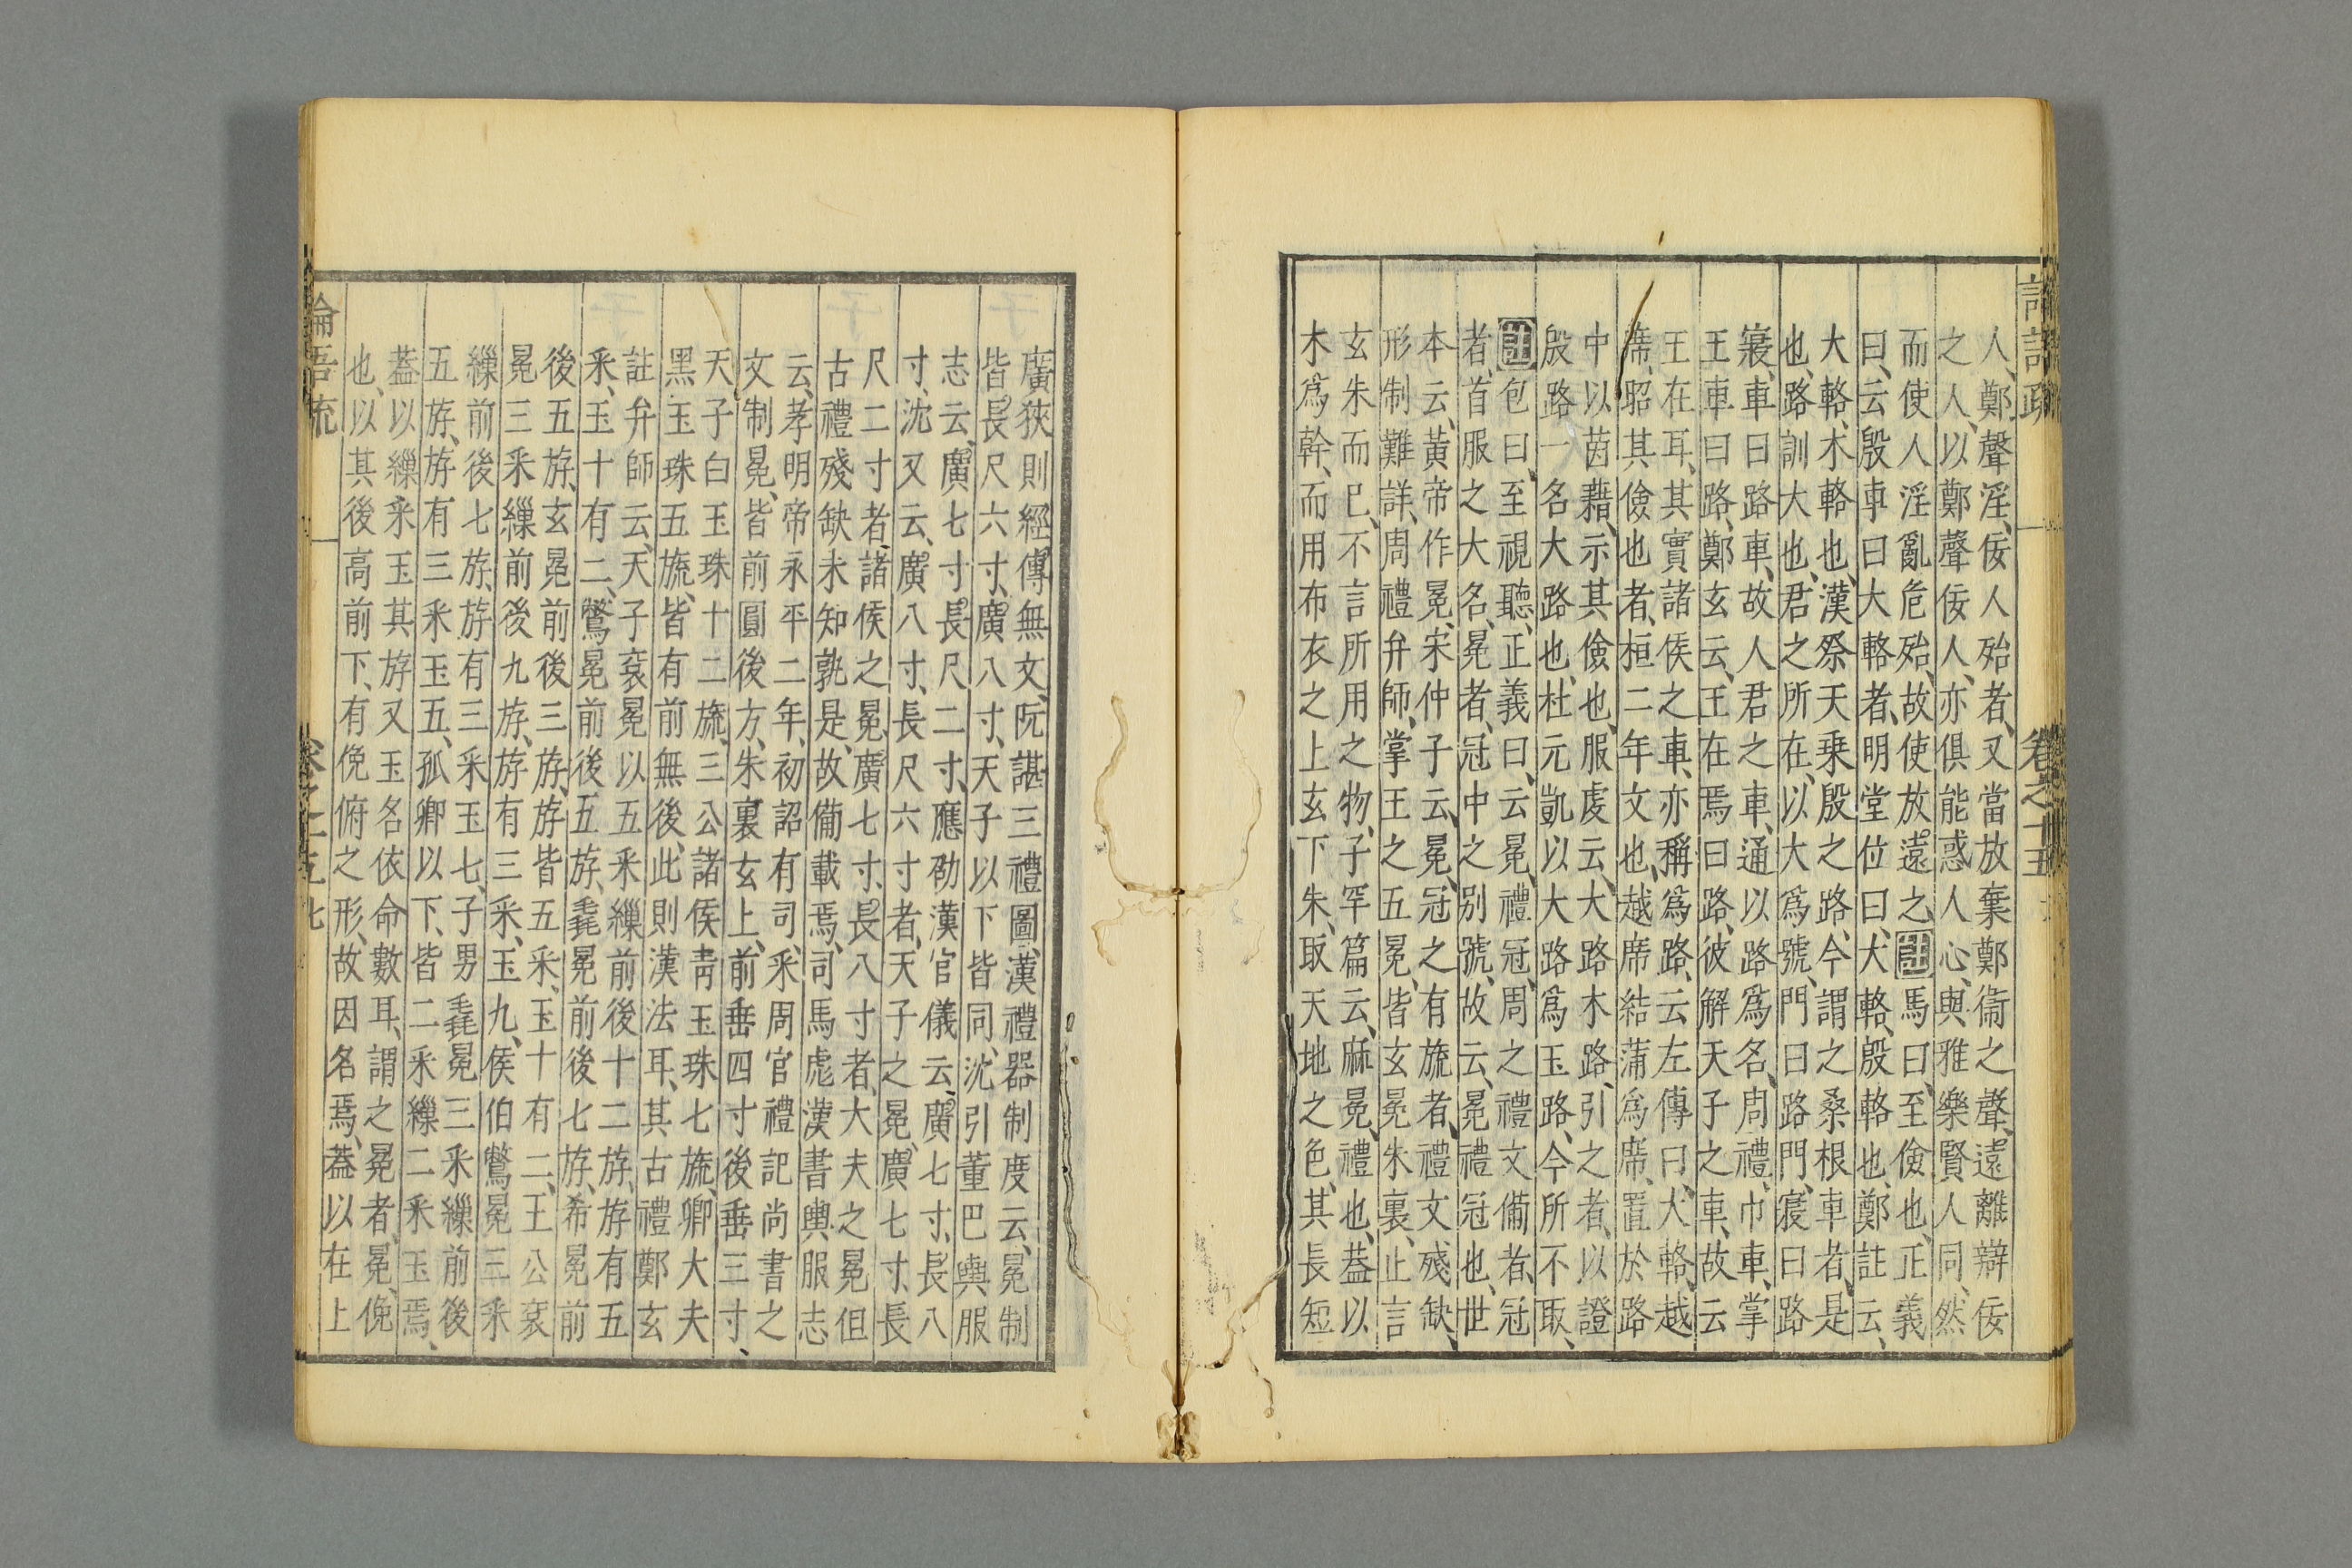 人、鄭聲淫、佞人殆者、又當放棄鄭衞之聲、遠離辯佞
之人、以鄭聲佞人、亦俱能惑人心、與雅樂賢人同、然
而使人淫亂危殆、故使放遠之、註馬曰、至儉也、正義
曰、云殷車曰大輅者、明堂位曰、大輅、殷輅也、鄭註云、
大輅、木輅也、漢祭天乗殷之路、今謂之桑根車者、是
也、路訓大也、君之所在、以大爲號、門曰路門、寢曰路
寢、車曰路車、故人君之車、通以路爲名、周禮、巾車、掌
王車曰路、鄭玄云、王在焉曰路、彼解天子之車、故云
王在耳、其實諸侯之車、亦稱爲路、云左傳曰、大輅、越
席、昭其儉也者、桓二年文也、越席結蒲爲席、置於路
中以茵藉、示其儉也、服虔云、大路木路、引之者、以證
殷路一名大路也、杜元凱以大路爲玉路、今所不取、
註包曰、至視聽、正義曰、云冕、禮冠、周之禮文備者、冠
者、首服之大名、冕者、冠中之別號、故云、冕禮冠也、世
本云、黃帝作冕、宋仲子云、冕、冠之有旒者、禮文殘缺、
形制難詳、周禮弁師、掌王之五冕、皆玄冕朱裏、止言
玄朱而已、不言所用之物、子罕篇云、麻冕、禮也、蓋以
木爲幹、而用布衣之上玄下朱、取天地之色、其長短
廣狹則經傳無文、阮諶三禮圖、漢禮器制度云、冕制
皆長尺六寸、廣八寸、天子以下皆同、沈引董巴輿服
志云、廣七寸、長尺二寸、應劭漢官儀云、廣七寸、長八
寸、沈又云、廣八寸、長尺六寸者、天子之冕、廣七寸、長
尺二寸者、諸侯之冕、廣七寸、長八寸者、大夫之冕、但
古禮殘缺、未知孰是、故備載焉、司馬彪漢書輿服志
云、孝明帝永平二年、初詔有司、采周官禮記尚書之
文制冕、皆前圓後方、朱裏玄上、前垂四寸後垂三寸、
天子白玉珠十二旒、三公諸侯靑玉珠七旒、卿大夫
黑玉珠五旒、皆有前無後、此則漢法耳、其古禮鄭玄
註弁師云、天子袞冕以五采繅前後十二斿、斿有五
采、玉十有二、鷩冕前後五斿、毳冕前後七斿、希冕前
後五斿、玄冕前後三斿、斿皆五采、玉十有二、王公袞
冕三采繅前後九斿、斿有三采、玉九、侯伯鷩冕三采
繅前後七斿、斿有三采玉七、子男毳冕三采繅前後
五斿、斿有三采玉五、孤卿以下、皆二采繅二采玉焉、
蓋以繅采玉其斿又玉名依命數耳、謂之冕者、冕、俛
也、以其後高前下、有俛俯之形、故因名焉、蓋以在上